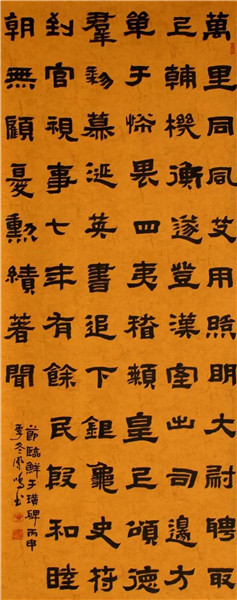 萬里同風艾用照明大尉聘取
上輔機衡遂登漢室出司邊方
單于怖畏四夷稽顙皇上頌德
羣黎慕涎英書追下銀龜史符
到官視事七年有餘民殷和睦
朝無顧憂勳績著聞
節臨鮮于璜碑丙申
季冬鳳鳴書